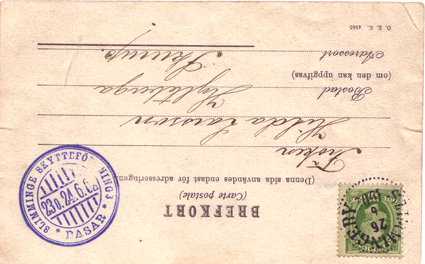 BREFKORT
(Carte postale)
(Denna sida användes endast för adresseringen.)
Fröken
Hilda Larsson
Bostad Hylteberga
(om den kan uppgifvas)
Adressort Skurup.
SLIMMINGE SKYTTEFÖRENINGS
23 o. 24.6.
BASAR
26
6